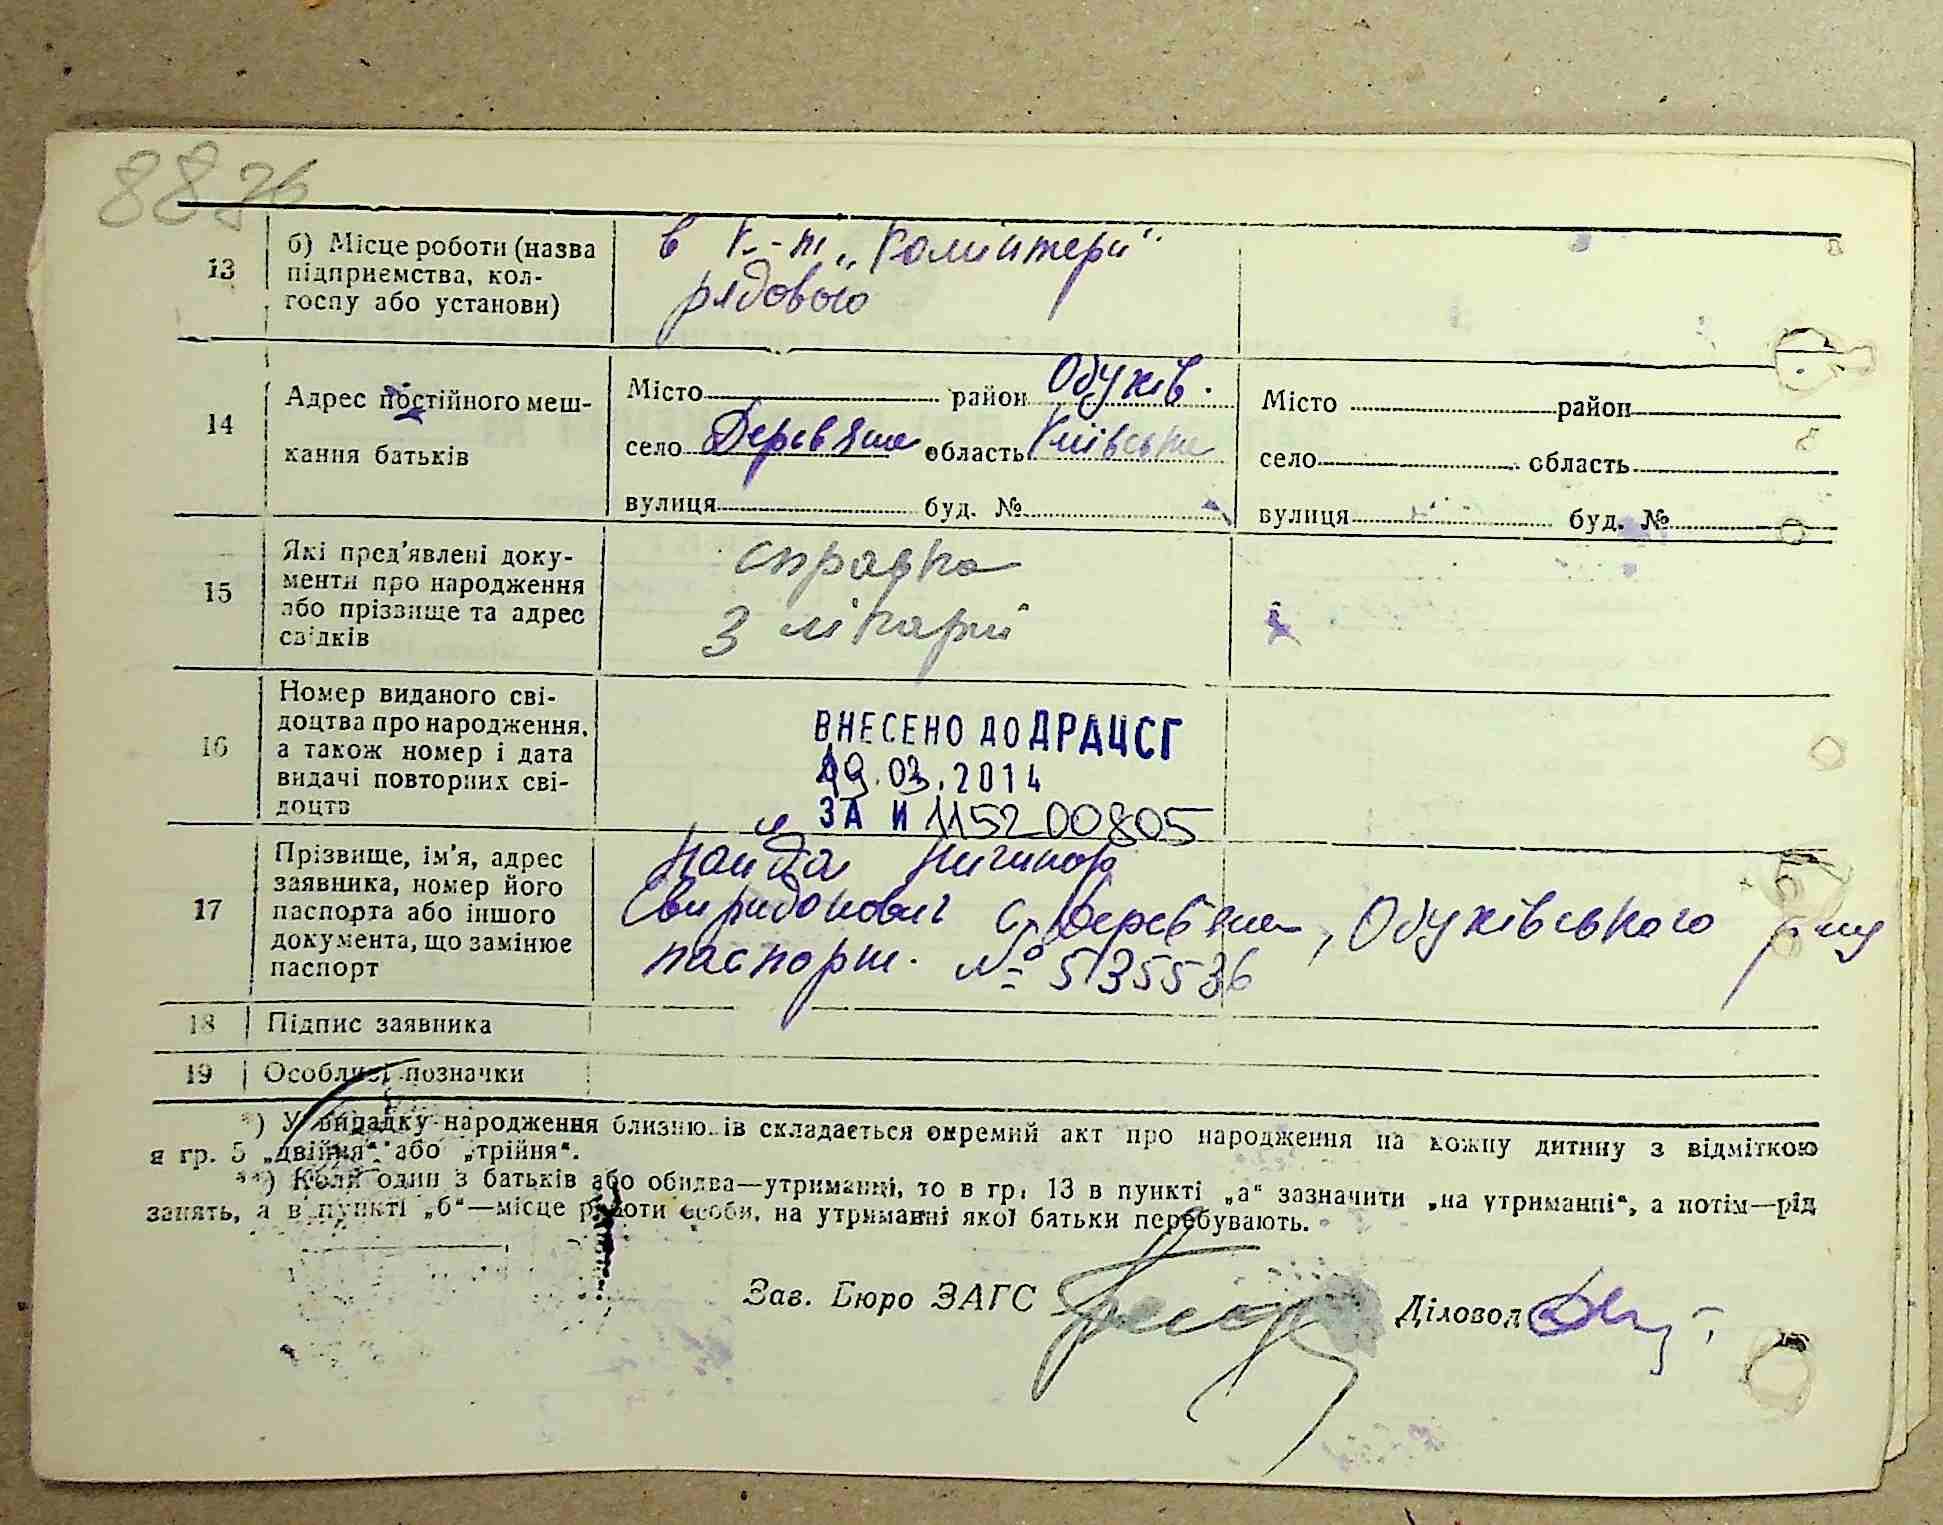 8836
13 б) Місце роботи (назва підприємства, колгоспу або установи)
в к-п „Комінтерн"
рядовою
14 Адрес постійного мешкання батьків
Місто район Обухів.
село Деревяна область Київська
вулиця буд. №
Місто район
село область
вулиця буд. №
15 Які пред'явлені документи про народження або прізвище та адрес свідків
справка
з лікарні
16 Номер виданого свідоцтва про народження, а також номер і дата видачі повторних свідоцтв
ВНЕСЕНО ДО ДРАЦСГ
19.03.2014
ЗА И 115200805
17 Прізвище, ім'я, адрес заявника, номер його паспорта або іншого документа, що замінює паспорт
Найда Ничипор
Свиридонович с. Деревяна, Обухівського р-ну
паспорт. № 5135536
18 Підпис заявника
19 Особливі позначки
*) У випадку народження близнюків складається окремий акт про народження на кожну дитину з відміткою
в гр. 5 „двійня" або „трійня".
**) Коли один з батьків або обидва—утриманці, то в гр. 13 в пункті „а" зазначити „на утриманні", а потім—рід
занять, а в пункті „б"—місце роботи особи, на утриманні якої батьки перебувають.
Зав. Бюро ЗАГС Діловод